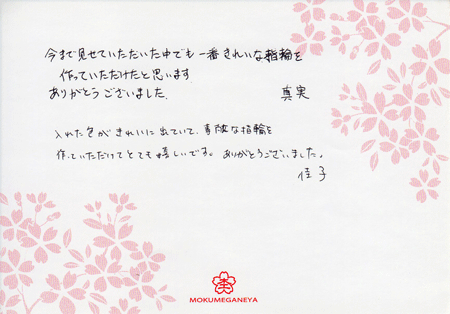 今まで見せていただいた中でも一番きれいな指輪を
作っていただけたと思います
ありがとうございました。
真実
入れた色がきれいに出ていて、素敵な指輪を
作っていただけてとても嬉しいです。ありがとうございました。
佳子
MOKUMEGANEYA